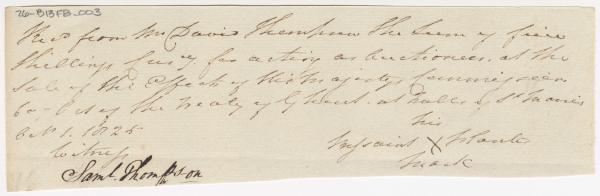 26-B13FB-003
Recd from Mr David Thompson the Sum of five
Shillings for acting as Auctioneer, at the
Sale of the Effects of His Majestys Commission
6 & 7 of the Treaty of Ghent. at Sault of St Maries
Octr 1. 1825
his
X
mark
Witness
Saml. Thompson